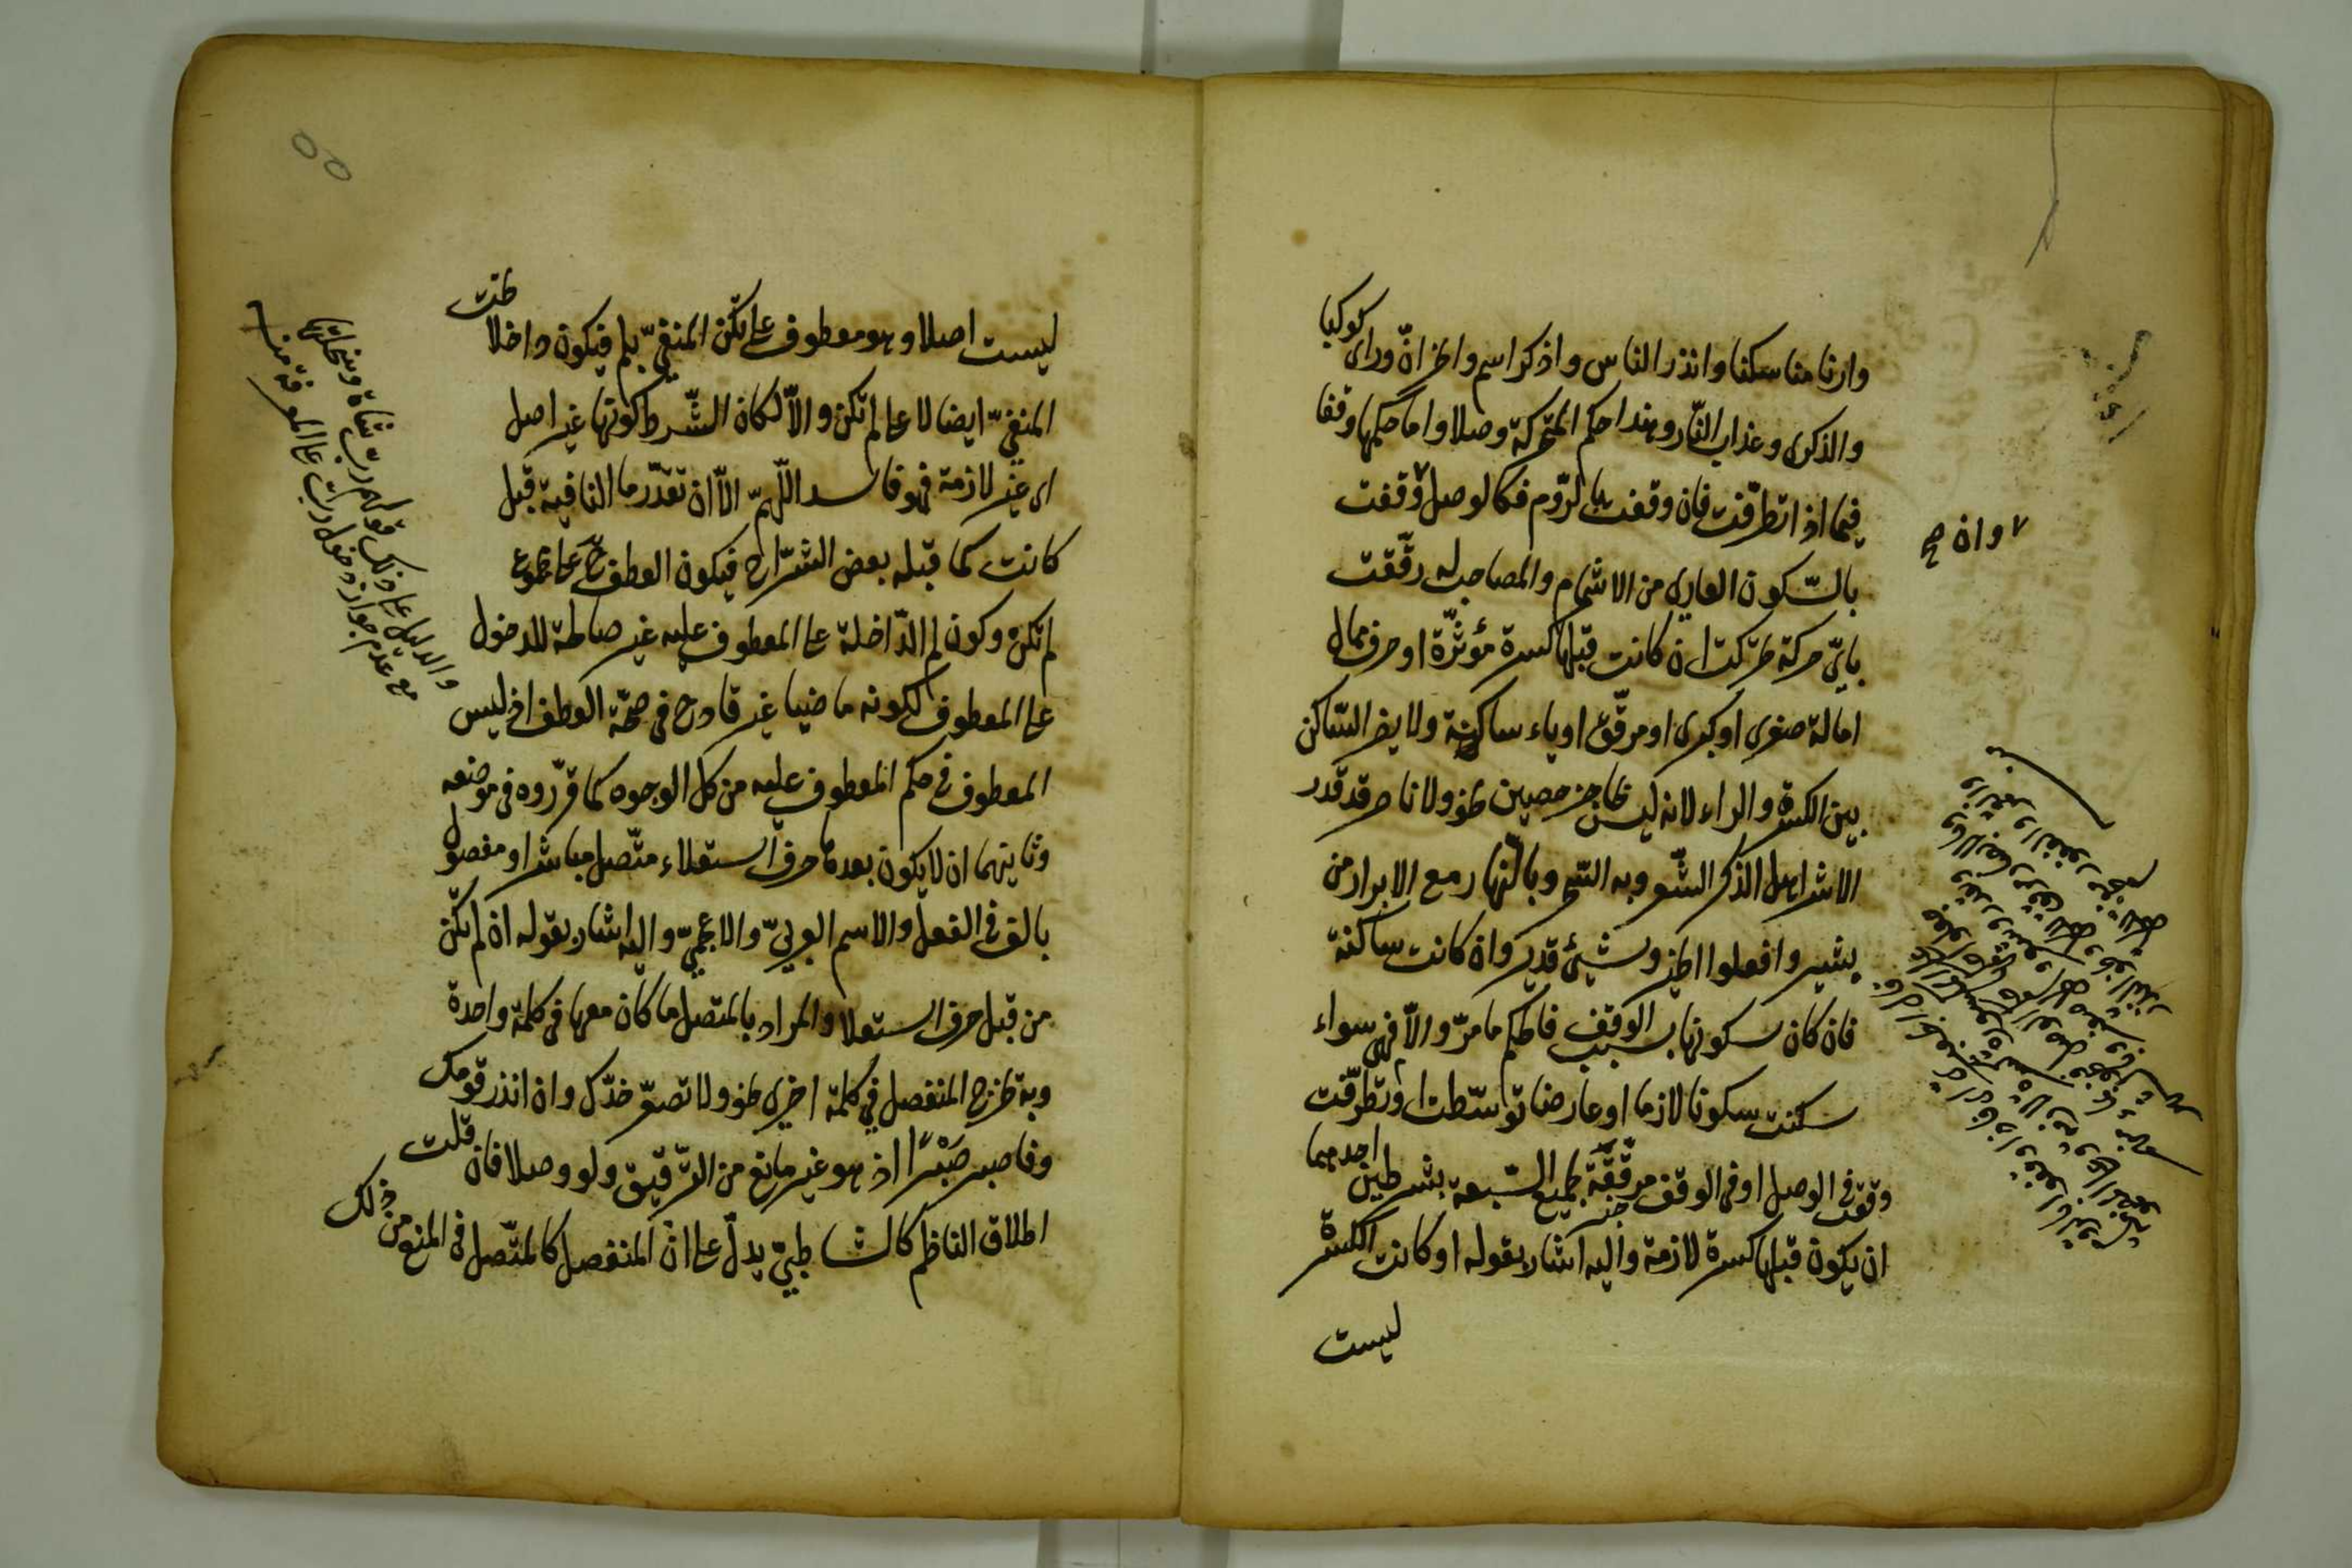 وارنا مناسكنا وانذر الناس واذكر اسم وانحر ان وراى كوكبا
والذكرى وعذاب النار وهذا حكم المتحركة وصلا واما حكمها وقفا
فيما اذا تطرّفت فان وقفت بالرّوم فكالوصل وقفت
بالسّكون العارى من الاشمام والمصاحب له رقّقت
باىّ حركة تحرّكت ان كانت قبلها كسرة مؤثّرة او حرف ممال
امالة صغرى او كبرى او مرقّق او ياء ساكنة ولا يضر السّاكن
بين الكسرة والراء لانه ليس بحاجز حصين نحو ولا ناصر قد قدر
الاشر اهل الذكر الشّعر وبه السّحر وبالنّهار مع الابرار من
بشير وافعلوا الخير وشىء قدير وان كانت ساكنة
فان كان سكونها بسبب الوقف فالحكم ما مرّ والّا فهى سواء
سكنت سكونا لازما او عارضا توسّطت او تطرّفت
وقعت فى الوصل او فى الوقف مرقّقة لجميع السّبعة بشرطين احدهما
ان يكون قبلها كسرة لازمة واليه اشار بقوله او كانت الكسرة
ليست
٧ وان صح
ليست اصلا وهو معطوف على تكن المنفىّ بلم فيكون داخلا تحت
المنفىّ ايضا لا على لم تكن والّا لكان الشّرط كونها غير اصل
اى غير لازمة فهو فاسد اللّهمّ الّا ان تقدّر ما النافية قبل
كانت كما قبله بعض الشّرّاح فيكون العطف ح على مجموع
لم تكن وكون لم الدّاخلة على المعطوف عليه غير صالحة للدخول
على المعطوف لكونه ماضيا غير قادح فى صحّة العطف اذ ليس
المعطوف فى حكم المعطوف عليه من كل الوجوه كما قرّروه فى موضعه
وثانيهما ان لا يكون بعدها حرف استعلاء متّصل مباشرا ومفصول
بالف فى الفعل والاسم العربىّ والاعجمىّ واليه اشار بقوله ان لم تكن
من قبل حرف استعلا والمراد بالمتصل ما كان معها فى كلمة واحدة
وبه خرج المنفصل فى كلمة اخرى نحو ولا تصعّر خدّك وان انذر قومك
وفاصبر صَبْرًا اذ هو غير مانع من التّرقيق ولو وصلا فان قلت
اطلاق الناظم كالشاطبىّ يدلّ على انّ المنفصل كالمتّصل فى المنع من ذلك
والدليل على ذلك قولهم ربّ شاة وسخلتها
مع عدم جواز دخول ربّ على المعرفة منه